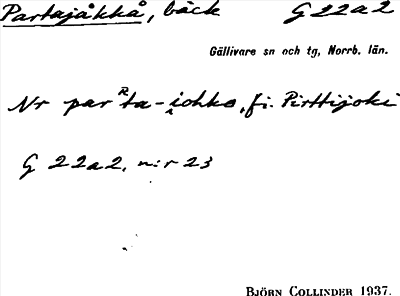 Partajåkkå, bäck G 22 a 2
Gällivare sn och tg, Norrb. län.
Nr parᴿta-i̯ohka, fi. Pirttijoki
G 22 a 2, n:r 23
BJÖRN COLLINDER 1937.